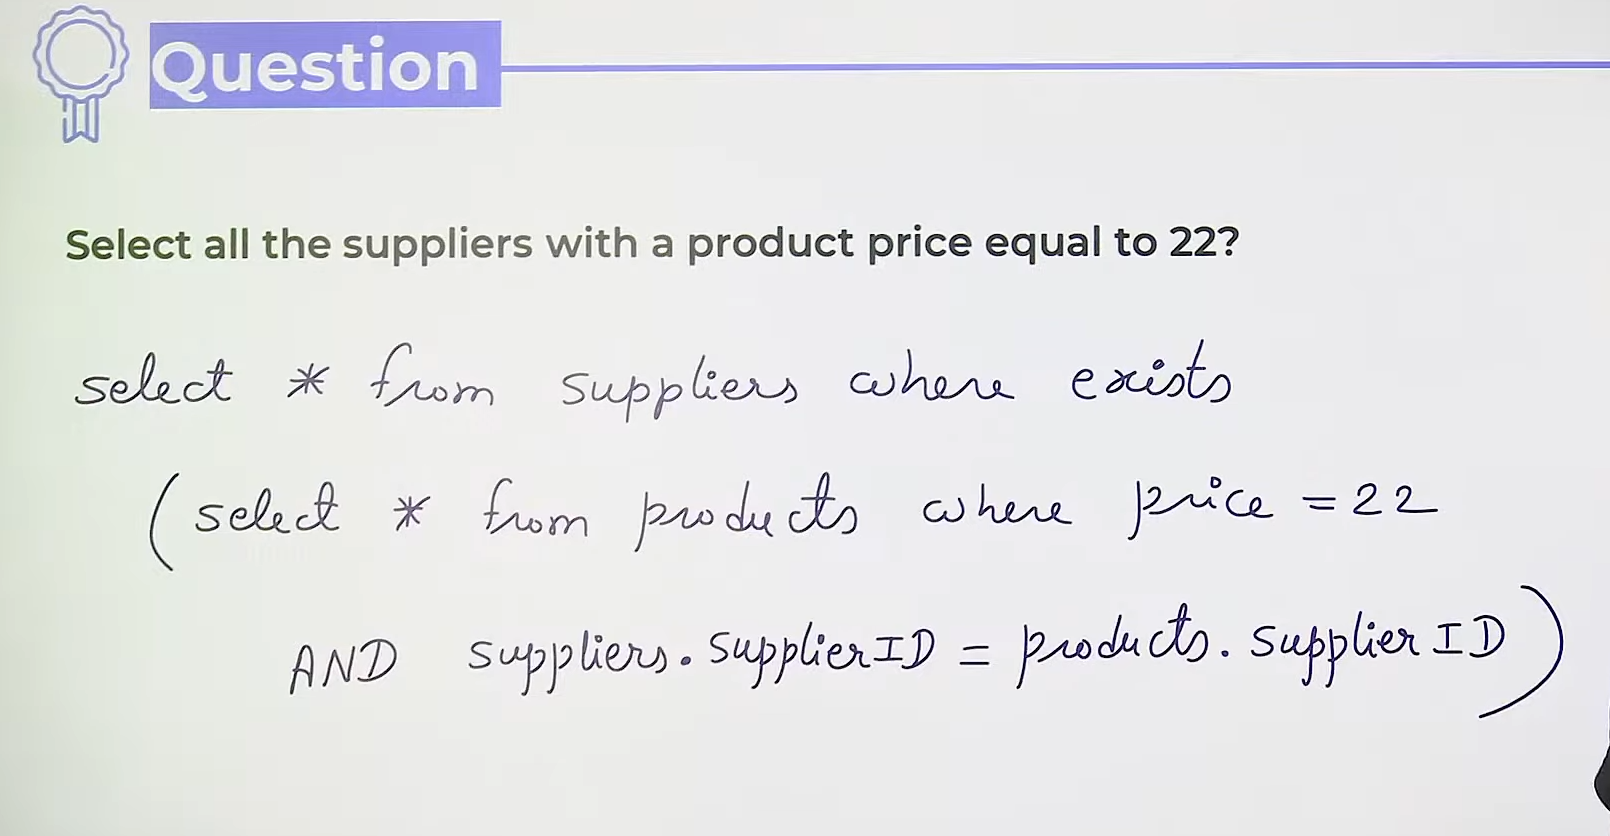 Question
Select all the suppliers with a product price equal to 22?
select * from suppliers where exists
(select * from products where price = 22
AND suppliers.supplierID = products.supplierID)